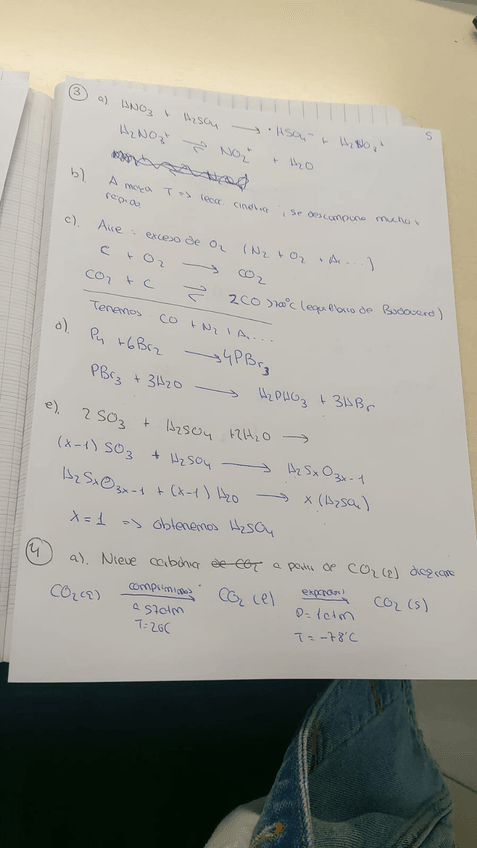 5
③ a) HNO3 + H2SO4 → HSO4⁻ + H2NO3⁺
H2NO3⁺ ⇌ NO2⁺ + H2O
b) A mayor T => reac. cinética, se descompone mucho +
rapido
c). Aire = exceso de O2 (N2 + O2 + Ar...)
C + O2 → CO2
CO2 + C ⇌ 2CO (equilibrio de Boudouard)
Tenemos CO + N2 + Ar...
d). P4 + 6Br2 → 4PBr3
PBr3 + 3H2O → H2PHO3 + 3HBr
e). 2SO3 + H2SO4 + 2H2O →
(x-1) SO3 + H2SO4 → H2SxO3x-1
H2SxO3x-1 + (x-1) H2O → x(H2SO4)
x=1 => obtenemos H2SO4
④ a). Nieve carbónica de CO2 a partir de CO2(g) diagrama
CO2(g) comprimimos → CO2(l) expansión → CO2(s)
a 57atm P=1atm
T=20C T=-78ºC